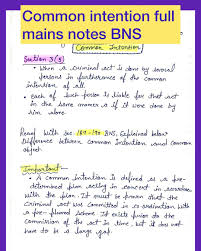 Common intention full
mains notes BNS
Common Intention
Section 3(5)
• When a criminal act is done by several
persons in furtherance of the common
intention of all.
• Each of such person is liable for that act
in the same manner as if it were done by
him alone.
Read with sec. BNS, Explained below
Difference between Common Intention and Common
object.
Important -
• A common intention is defined as a pre-
determined plan acting in concert in accordance
with the plan. It must be proven that the
Criminal act was committed in co-ordination with
a pre-planned scheme. It exists prior to the
Commission of the act in time, but it does not
have to be a large gap.